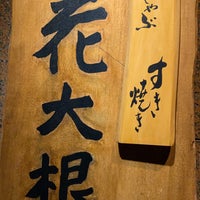 ゃぶ
すき焼き
花大根